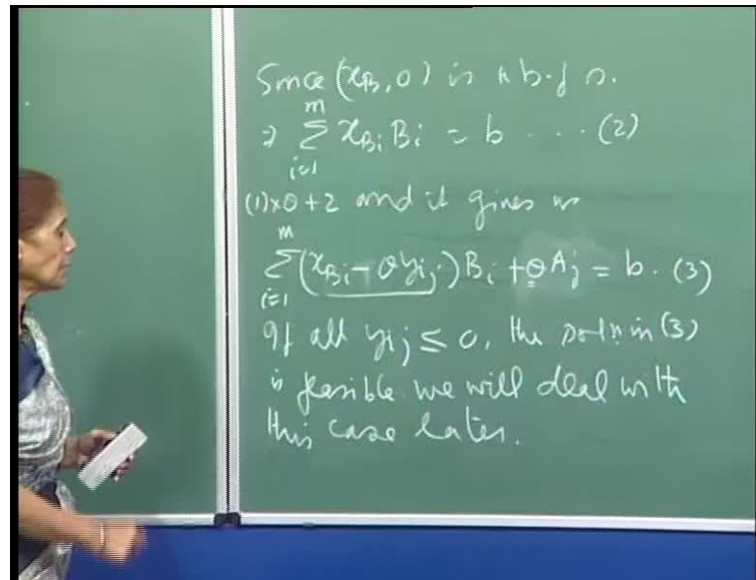 Since (x_B, 0) is a b.f s.
⇒ m∑i=1 x_{Bi} B_i = b . . . (2)
(1)×θ+2 and it gives us
m∑i=1 (x_{Bi} - θ y_{ij}) B_i + θ A_j = b. (3)
If all y_{ij} ≤ 0, the soln in (3)
is feasible we will deal with
this case later.